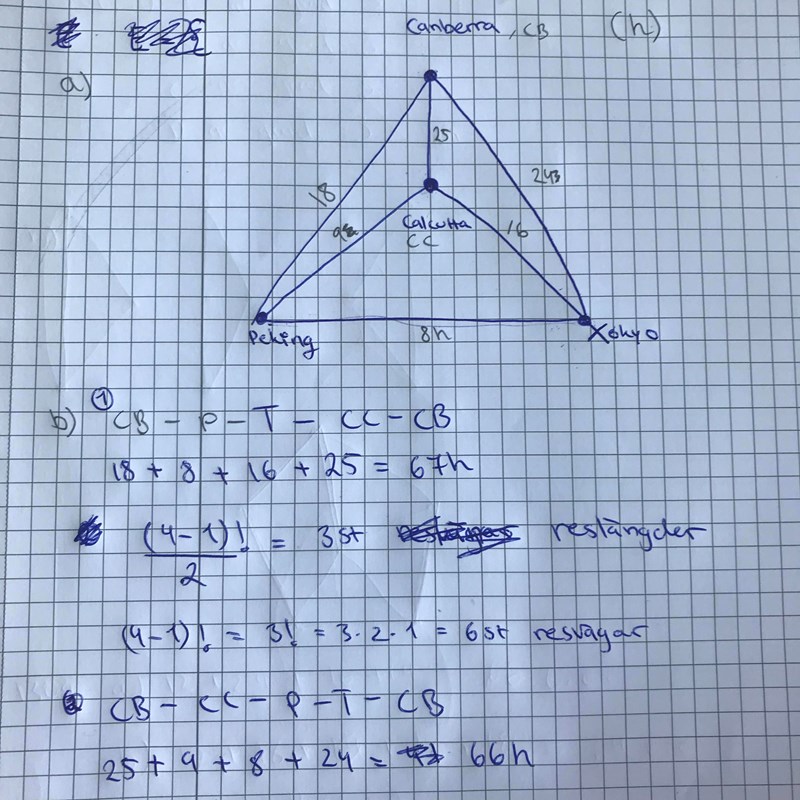 Canberra, CB (h)
a)
25
18
243
Calcutta
CC
16
Peking
8h
Tokyo
b) ① CB - P - T - CC - CB
18 + 8 + 16 + 25 = 67h
(4-1)!/2 = 3st reslängder
(4-1)! = 3! = 3·2·1 = 6st resvägar
CB - CC - P - T - CB
25 + 9 + 8 + 24 = 66h